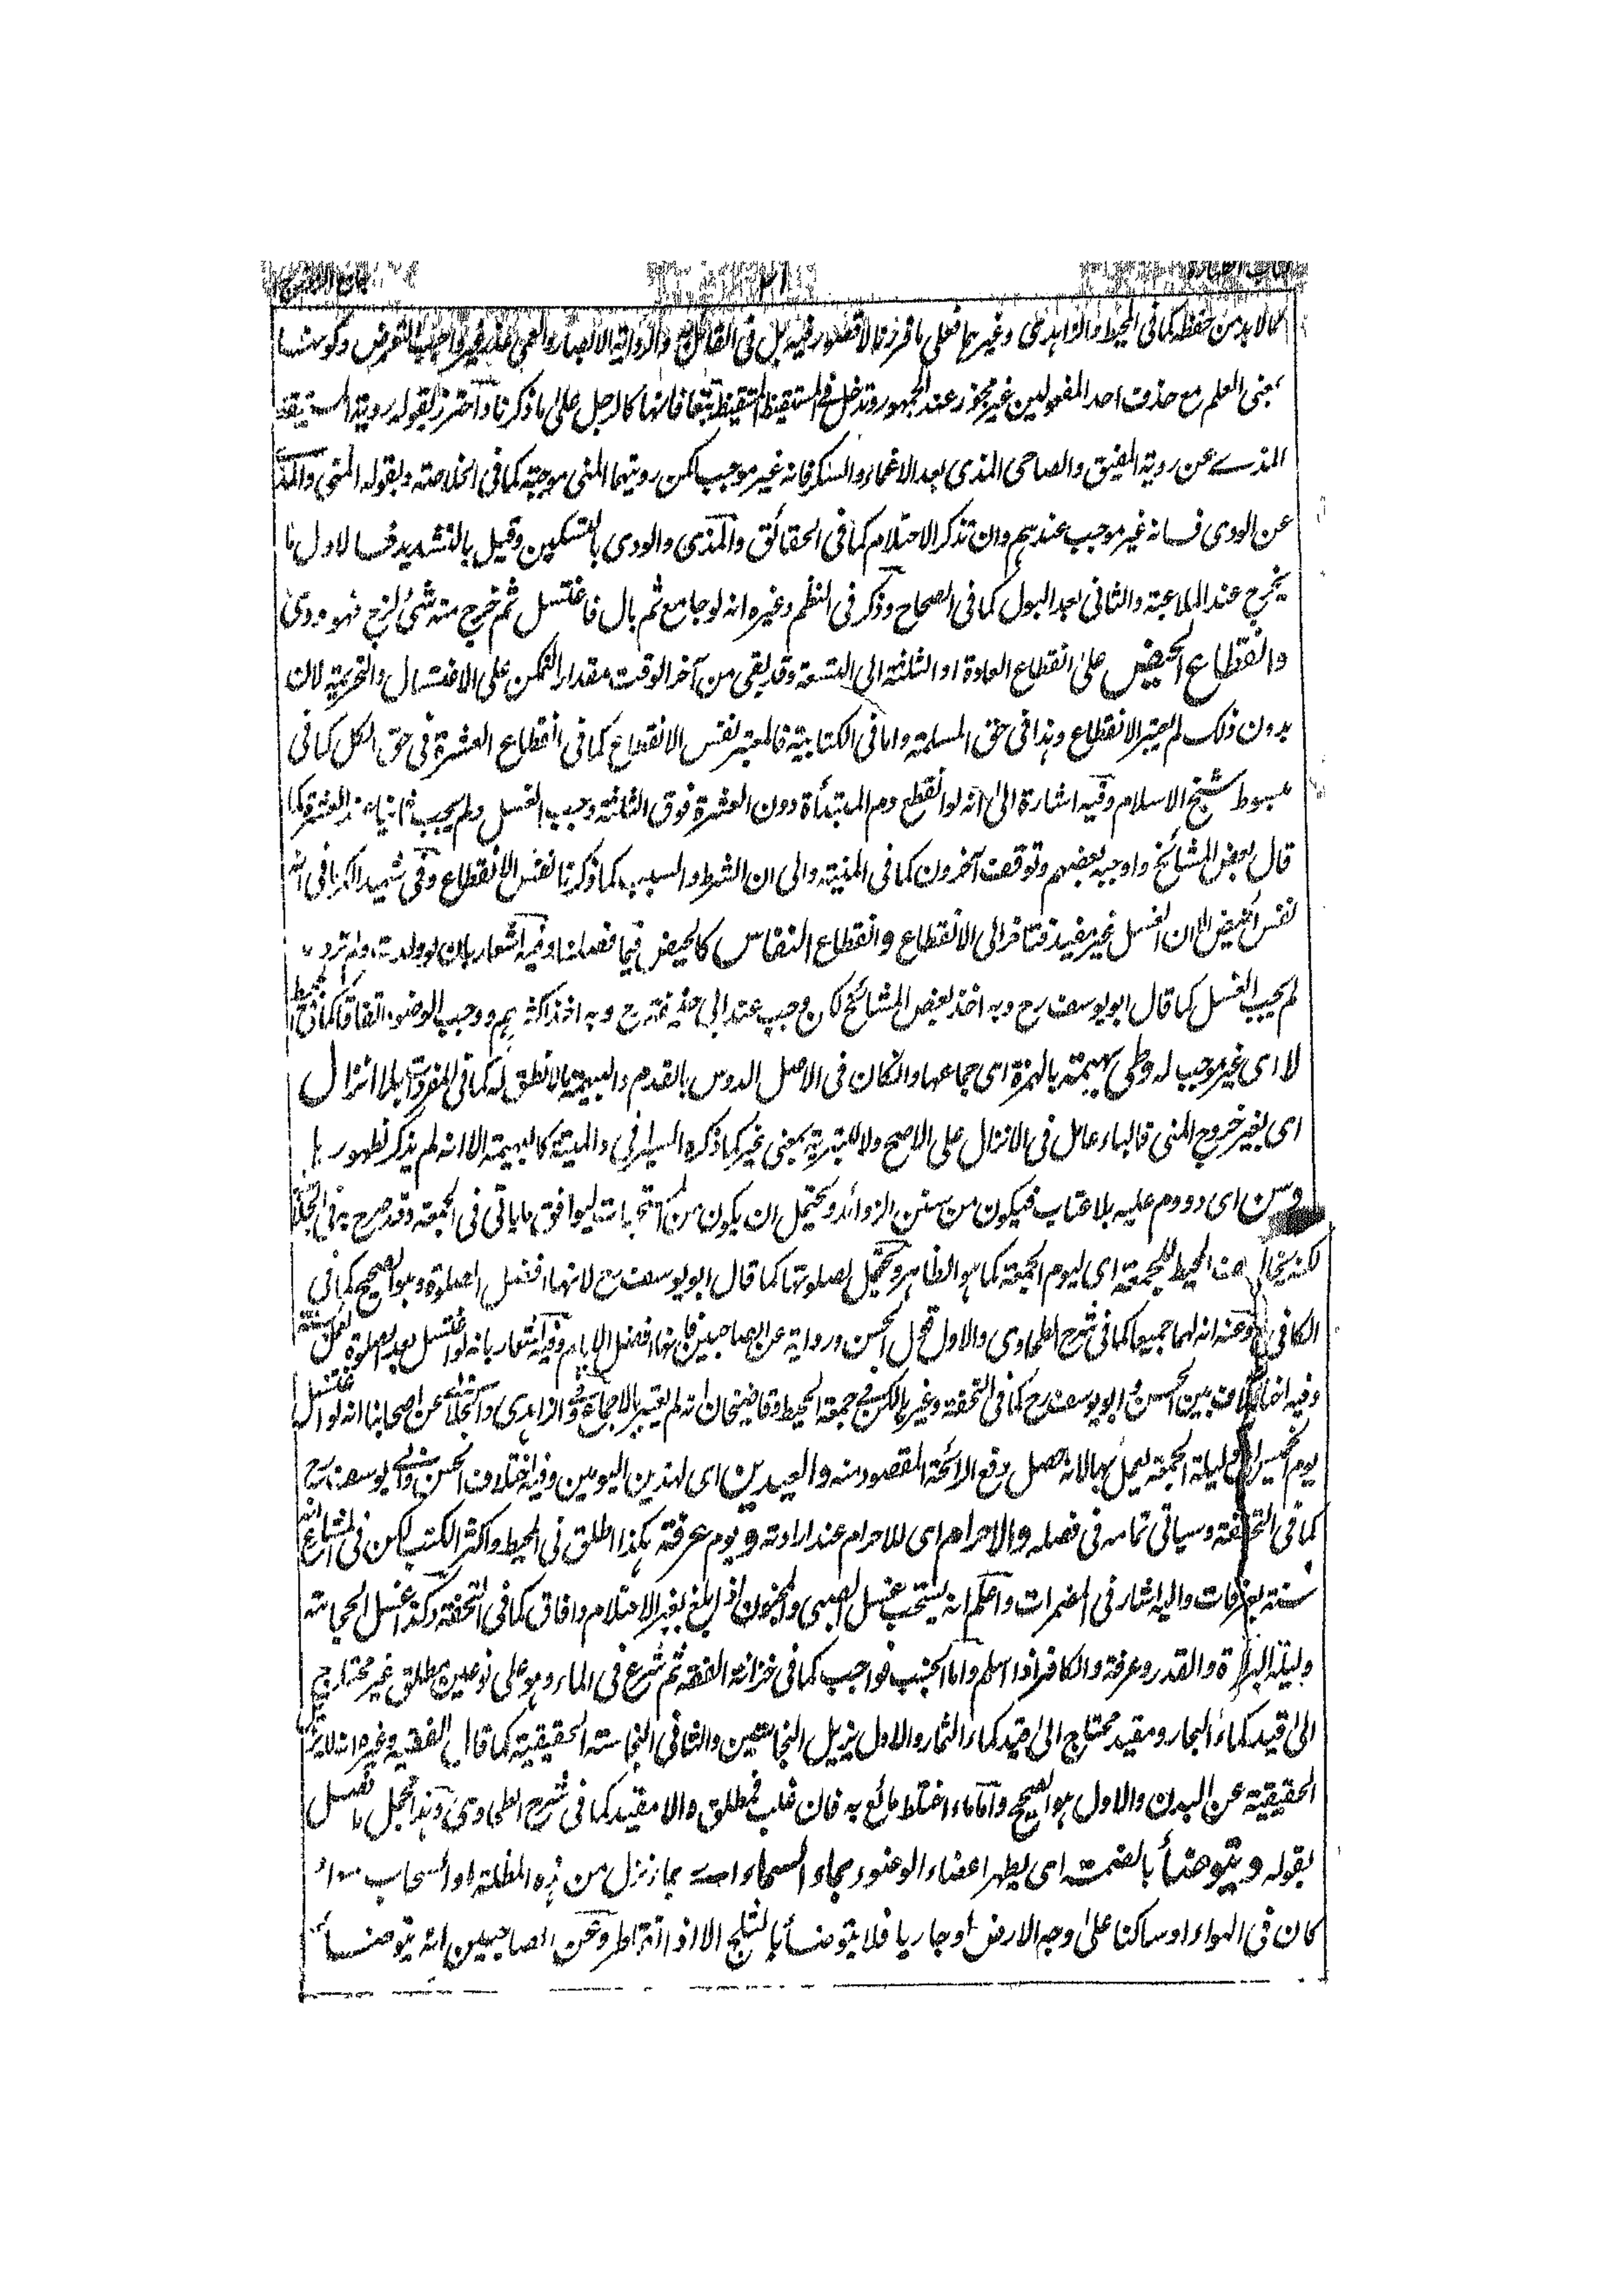 كتاب الطهارة ٣١ جامع الرموز
مما لابد من حفظه كما فى المحيط والزاهدى وغيرهما فعلى ما قررنا لا قصور فيه بل فى القائل والرؤية الابصار والعمى غير واجب التعرض وكونها
بمعنى العلم مع حذف احد المفعولين غير مجوز عند الجمهور وتدخل فى المستيقظ المستيقظة تبعا فانها كالرجل على ما ذكرنا واحترز بقوله روية المستيقظ
المذى عن روية المفيق والصاحى المذى بعد الاغماء والسكر فانه غير موجب لكن رويتهما المنى موجبة كما فى الخلاصة وبقوله المنى والمذى
عن الودى فانه غير موجب عندهم وان تذكر الاحتلام كما فى الحقائق والمذى والودى بالتسكين وقيل بالتشديد فالاول ما
يخرج عند الملاعبة والثانى بعد البول كما فى الصحاح وذكر فى النظم وغيره انه لو جامع ثم بال فاغتسل ثم خرج منه شئ لزج فهو ودى
وانقطاع الحيض على انقطاع العادة او الثلثة الى التسعة وقد بقى من آخر الوقت مقدار التمكن على الاغتسال والتحريمة لان
بدون ذلك لم يعتبر الانقطاع وهذا فى حق المسلمة واما فى الكتابية فالمعتبر نفس الانقطاع كما فى انقطاع العشرة فى حق الكل كما فى
مبسوط شيخ الاسلام وفيه اشارة الى انه لو انقطع دم المبتدأة دون العشرة فوق الثلثة وجب الغسل ولم يجب ثانيا عند العشرة كما
قال بعض المشائخ واوجبه بعضهم وتوقف آخرون كما فى المنية والى ان الشرط والسبب كما ذكرنا نفس الانقطاع وفى شهيد الكرمانى انه
نفس الحيض الا ان الغسل غير مفيد فتأخر الى الانقطاع وانقطاع النفاس كالحيض فيما فصلنا وفيه اشعار بان لو ولدت ولم تر دما
لم يجب الغسل كما قال ابو يوسف رح وبه اخذ بعض المشائخ لكن وجب عند ابى حنيفة رح وبه اخذ اكثرهم ووجب الوضوء اتفاقا كما فى المحيط
لا اى غير موجب له وطى بهيمة بالهمزة اى جماعها والكان فى الاصل الدوس بالقدم والبهيمة ما لا نطق له كما فى المفردات بلا انزال
اى بغير خروج المنى فالباء عامل فى الانزال على الاصح ولا للتبرية بمعنى غير كما ذكره السيرافى والميتة كالبهيمة الا انه لم يذكر لظهورها
وسن اى دووم عليه بلا عتاب فيكون من سنن الزوائد ويحتمل ان يكون من المستحبات ليوافق ما ياتى فى الجمعة وقد صرح به فى الجلابى
لكنه يخالف المحيط للجمعة اى ليوم الجمعة كما هو الظاهر ويحتمل لصلوتها كما قال ابو يوسف رح لانها افضل الصلوة وهو الصحيح كما فى
الكافى وعنه انه لهما جميعا كما فى شرح الطحاوى والاول قول الحسن ورواية عن الصاحبين فانها افضل الايام وفيه اشعار بانه لو اغتسل بعد الصلوة لعمل بسنة
وفيه اختلاف بين الحسن وابو يوسف رح كما فى التحفة وغيره لكن فى جمعة المحيط وقاضيخان انه لم يعتبر بالاجماع وفى الزاهدى والجلابى عن اصحابنا انه لو اغتسل
يوم الخميس او ليلة الجمعة ليعمل بها لانه حصل دفع الرائحة المقصود منه والعيدين اى لهذين اليومين وفيه اختلاف الحسن وابى يوسف رح
كما فى التحفة وسياتى تمامه فى فصله والاحرام اى للاحرام عند ارادته ويوم عرفة هكذا اطلق فى المحيط واكثر الكتب لكن فى المشارع انه
سنة بعرفات واليه اشار فى المضمرات واعلم انه يستحب غسل الصبى والمجنون اذا بلغ بغير الاحتلام وافاق كما فى التحفة وكذا غسل الحجامة
وليلة البراءة والقدر وعرفة والكافر اذا اسلم واما الجنب فواجب كما فى خزانة الفقه ثم شرع فى الماء وهو على نوعين مطلق غير محتاج
الى قيد كماء البحار ومقيد محتاج الى قيد كماء الثمار والاول يزيل النجاستين والثانى النجاسة الحقيقية كما قال الفقيه وغيره انه لا يزيل
الحقيقية عن البدن والاول هو الصحيح واما ماء اختلط مائع به فان غلب فمطلق والا مقيد كما فى شرح الطحاوى وهذا مجمل ما فصل
بقوله ويتوضأ بالضمة اى يطهر اعضاء الوضوء بماء السماء اى بما نزل من هذه المظلة او السحاب سواء
كان فى الهواء او ساكنا على وجه الارض او جاريا فلا يتوضأ بالثلج الا اذا تقاطر وعن الصاحبين انه يتوضأ